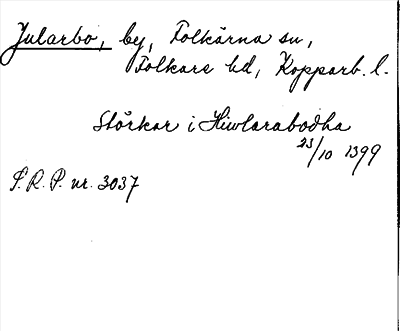 Jularbo, by, Folkärna sn,
Folkare hd, Kopparb. l.
Störkar i Hiwlarabodha
23/10 1399
S.R.P. nr. 3037